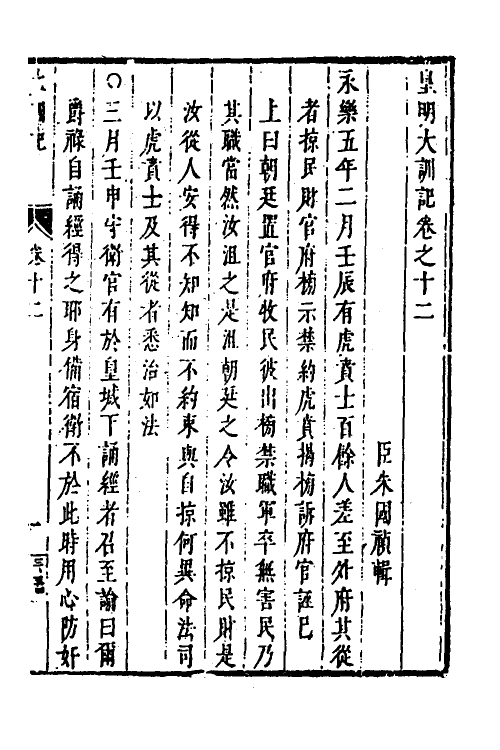 皇明大訓記卷之十二
臣朱國禎輯
永樂五年二月壬辰有虎賁士百餘人差至外府其從
者掠民財官府榜示禁約虎賁揭榜訴府官誣巳
上曰朝廷置官府牧民彼出榜禁職軍卒無害民乃
其職當然汝沮之是沮朝廷之令汝雖不掠民財是
汝從人安得不知知而不約束與自掠何異命法司
以虎賁士及其從者悉治如法
○三月壬申守衛官有於皇城下誦經者召至諭曰爾
爵祿自誦經得之耶身備宿衛不於此時用心防奸
卷十二